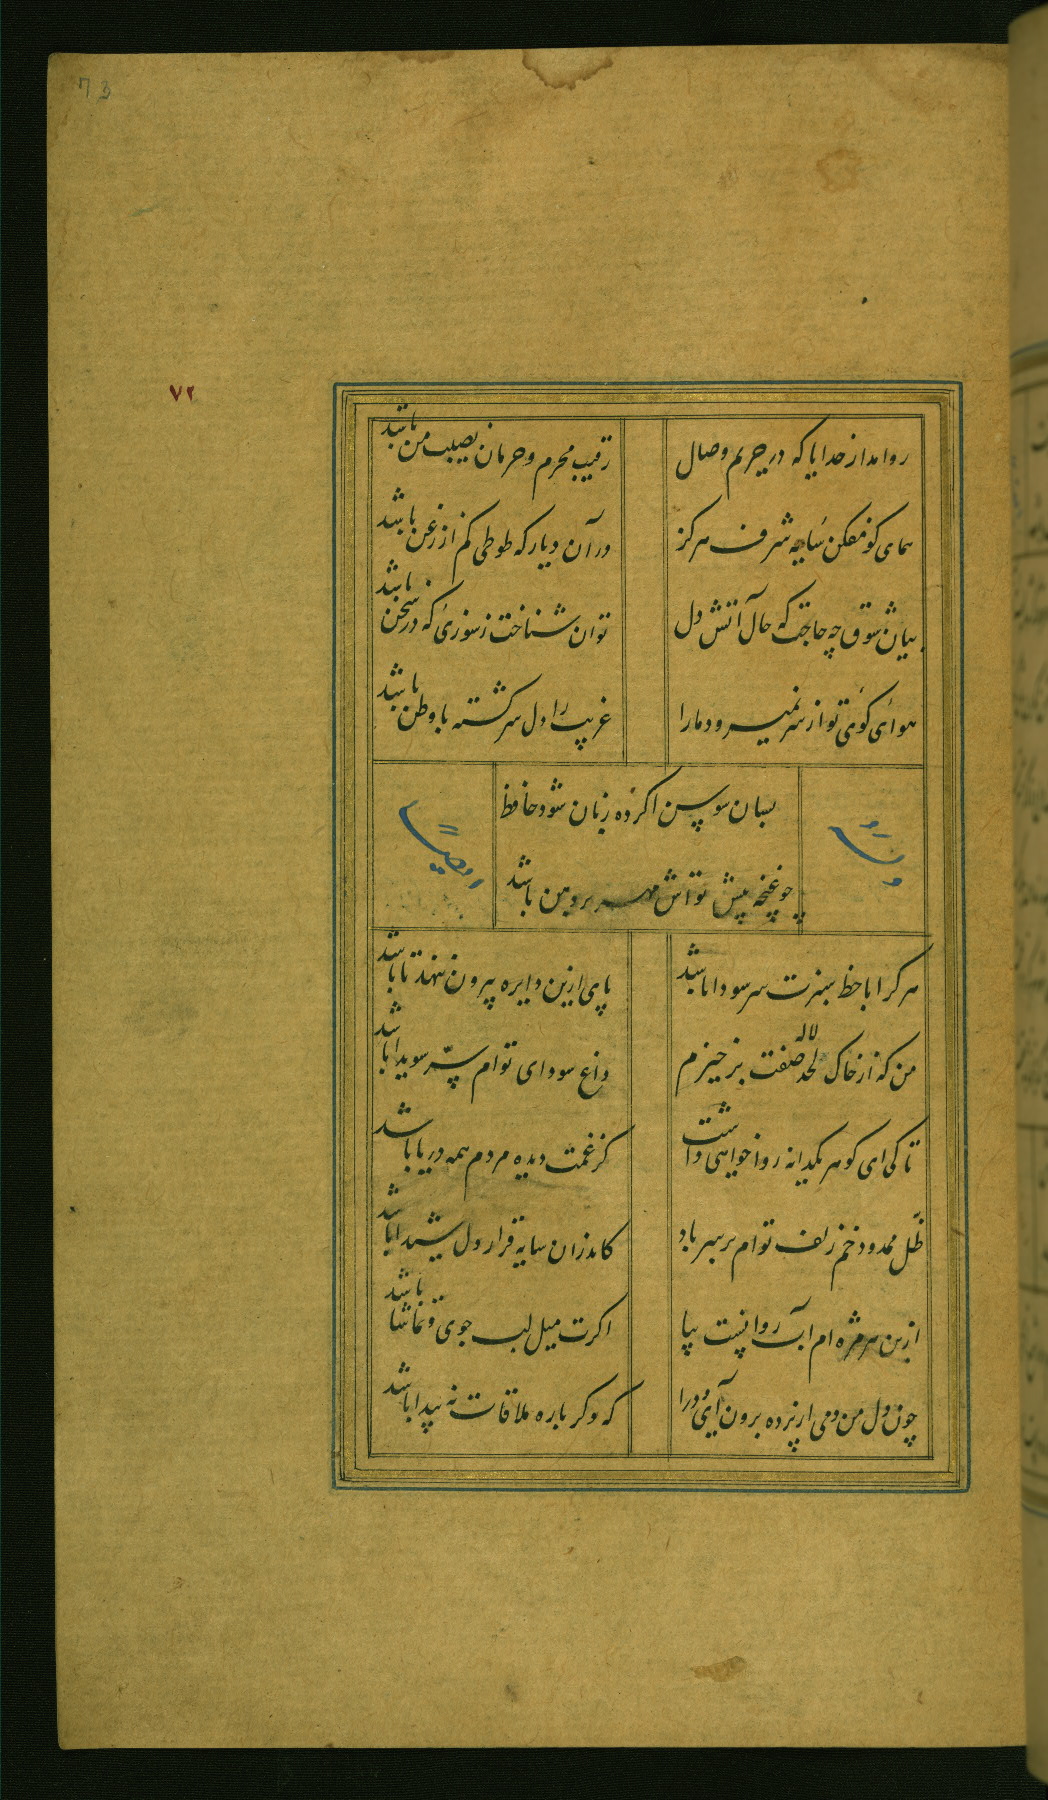 73
۷۲
روا مدار خدایا که در حریم وصال
رقیب محرم و حرمان نصیب من باشد
همای کو مفکن سایه شرف هرگز
در آن دیار که طوطی کم از زغن باشد
بیان شوق چه حاجت که حال آتش دل
توان شناخت ز سوزی که در سخن باشد
هوای کوی تو از سر نمیرود ما را
غریب را دل سرگشته با وطن باشد
بسان سوسن اگر ده زبان شود حافظ
چو غنچه پیش تو اش مهر بر دهن باشد
هر کرا با خط سبزت سر سودا باشد
پای ازین دایره بیرون ننهد تا باشد
من که از خاک لحد لاله صفت برخیزم
داغ سودای توام سر سویدا باشد
تا کی ای گوهر یکدانه روا خواهی داشت
کز غمت دیده مردم همه دریا باشد
ظل ممدود خم زلف توام بر سر باد
کاندران سایه قرار دل شیدا باشد
از بن هر مژه ام آب روانست بیا
اگرت میل لب جوی و تماشا باشد
چون دل من دمی از پرده برون آی و درا
که دگر باره ملاقات نه پیدا باشد